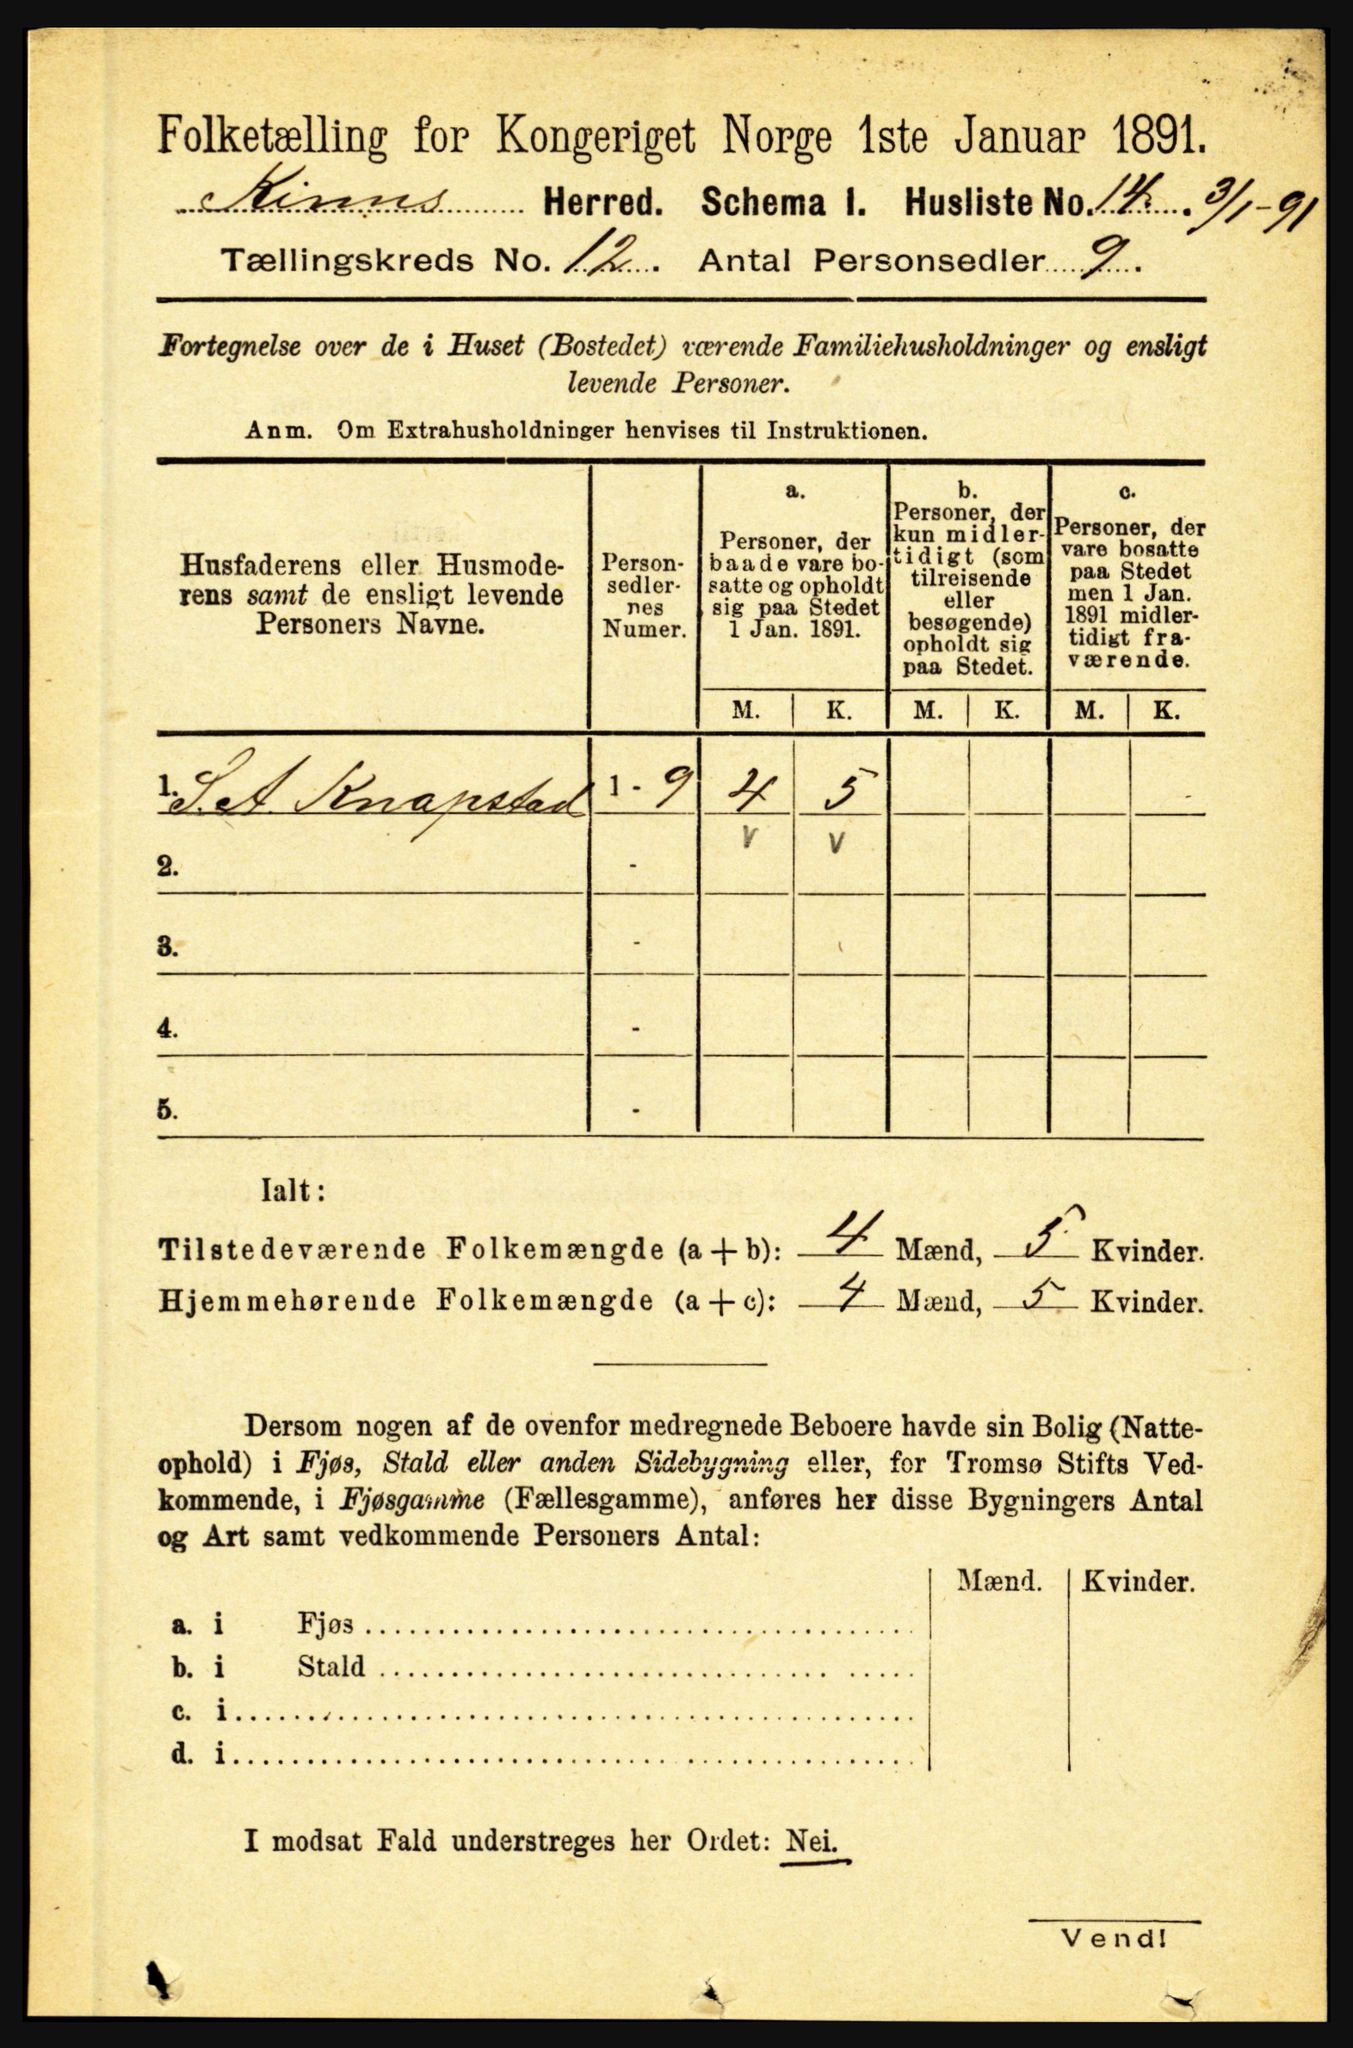 Folketælling for Kongeriget Norge 1ste Januar 1891.
Kinns Herred. Schema 1. Husliste No. 14. 3/1-91
Tællingskreds No. 12. Antal Personsedler 9.
Fortegnelse over de i Huset (Bostedet) værende Familiehusholdninger og ensligt
levende Personer.
Anm. Om Extrahusholdninger henvises til Instruktionen.
Husfaderens eller Husmode-
rens samt de ensligt levende
Personers Navne.
Person-
sedler-
nes
Numer.
a.
Personer, der
baade vare bo-
satte og opholdt
sig paa Stedet
1 Jan. 1891.
b.
Personer, der
kun midler-
tidigt (som
tilreisende
eller
besøgende)
opholdt sig
paa Stedet.
c.
Personer, der
vare bosatte
paa Stedet
men 1 Jan.
1891 midler-
tidigt fra-
værende.
M. K. M. K. M. K.
1. S. A. Knapstad 1 - 9 4 5
v v
2. -
3. -
4. -
5. -
Ialt:
Tilstedeværende Folkemængde (a + b): 4 Mænd, 5 Kvinder.
Hjemmehørende Folkemængde (a + c): 4 Mænd, 5 Kvinder.
Dersom nogen af de ovenfor medregnede Beboere havde sin Bolig (Natte-
ophold) i Fjøs, Stald eller anden Sidebygning eller, for Tromsø Stifts Ved-
kommende, i Fjøsgamme (Fællesgamme), anføres her disse Bygningers Antal
og Art samt vedkommende Personers Antal:
Mænd. Kvinder.
a. i Fjøs
b. i Stald
c. i
d. i
I modsat Fald understreges her Ordet: Nei.
Vend!